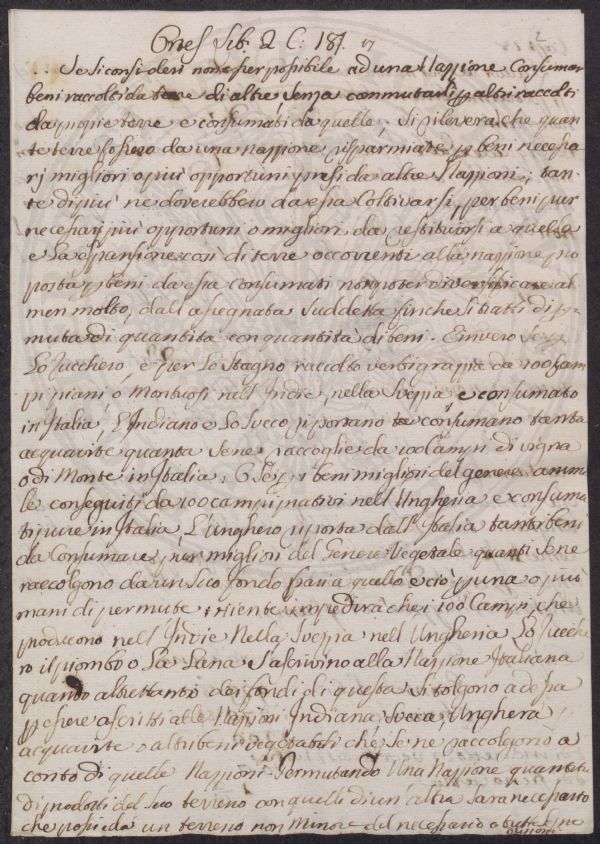 Ortes Lib. 2 C: 18. 17
.. Se si consideri non esser possibile ad una Nazzione consumar
beni raccolti da terre di altre, senza commutarli per altri raccolti
da proprie terre e consumati da quelle, si rileverà che quan
te terre fossero da una nazzione risparmiate per beni necessa
rj migliori o più opportuni presi da altre Nazzioni, tan-
te di più ne doverebbero da essa coltivarsi, per beni pur
necessarj più opportuni o migliori da restituirsi a quelle
e la espansione così di terre occorrenti alla nazzione pro
posta per beni da essa consumati non poter diversificare al
men molto, dall'assegnata suddetta finche si tratti di per
muta di quantità con quantità di beni. E invero se per
lo Zucchero, e per lo Stagno raccolto verbigrazzia da 100 cam
pi piani o Montuosi nell'Indie, nella Svezzia e consumato
in Italia, l'Indiano e lo Sveco riportano consumano tanta
acquavite quanta se ne raccoglie da 100 Campi di vigna
o di Monte in Italia, o se per beni migliori del genere anima
le conseguiti da 100 campi nativi nell'Ungheria e consuma
ti pure in Italia, l'Unghero riporta dall'Italia tanti beni
da consumare, pur migliori del Genere Vegetale quanti se ne
raccolgono da un suo fondo pari a quello e ciò per una o più
mani di permute, niente impedirà che i 100 Campi che
producono nell'Indie nella Svezzia nell'Ungheria lo Zucche
ro il piombo o la Lana s'ascrivino alla Nazzione Italiana
quando altrettanti dai fondi di questa si tolgono ad essa
per essere ascritti alle Nazzioni Indiana Sveca, Unghera,
acquavite o altri beni vegetabili che se ne raccolgono a
conto di quelle Nazzioni. Permutando Una Nazzione quantità
di prodotti del suo terreno con quelli di un'altra sarà necessario
che possieda un terreno non minore del necessario a tutte